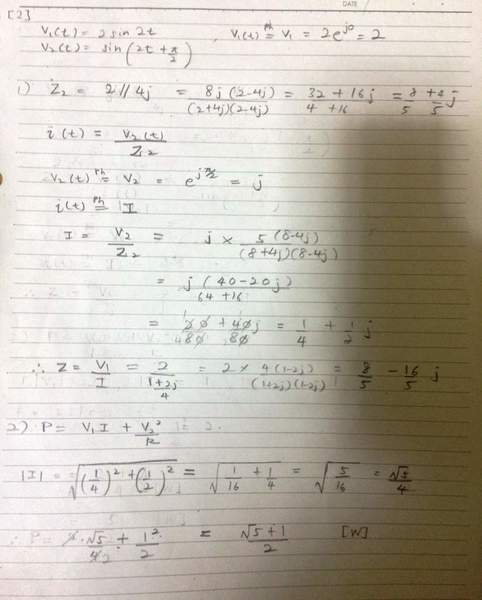 DATE
[2]
V₁(t) = 2 sin 2t    V₁(t) ≝ᴾʰ V₁ = 2e^{j0} = 2
V₂(t) = sin (2t + π/2)
1) Z₂ = 2 // 4j = 8j (2-4j) / (2+4j)(2-4j) = (32 + 16j) / (4 + 16) = 8/5 + 4/5 j
i(t) = V₂(t) / Z₂
V₂(t) ≝ᴾʰ V₂ = e^{jπ/2} = j
i(t) ≝ᴾʰ I
I = V₂ / Z₂ = j × 5(8-4j) / (8+4j)(8-4j)
= j (40-20j) / (64+16)
= 20/80 + 40/80 j = 1/4 + 1/2 j
∴ Z = V₁ / I = 2 / ((1+2j)/4) = 2 × 4(1-2j) / (1+2j)(1-2j) = 8/5 - 16/5 j
2) P = V₁I + V₂²/R
|I| = √((1/4)² + (1/2)²) = √(1/16 + 1/4) = √(5/16) = √5/4
∴ P = 2·√5/4 + 1²/2 = (√5+1)/2 [W]